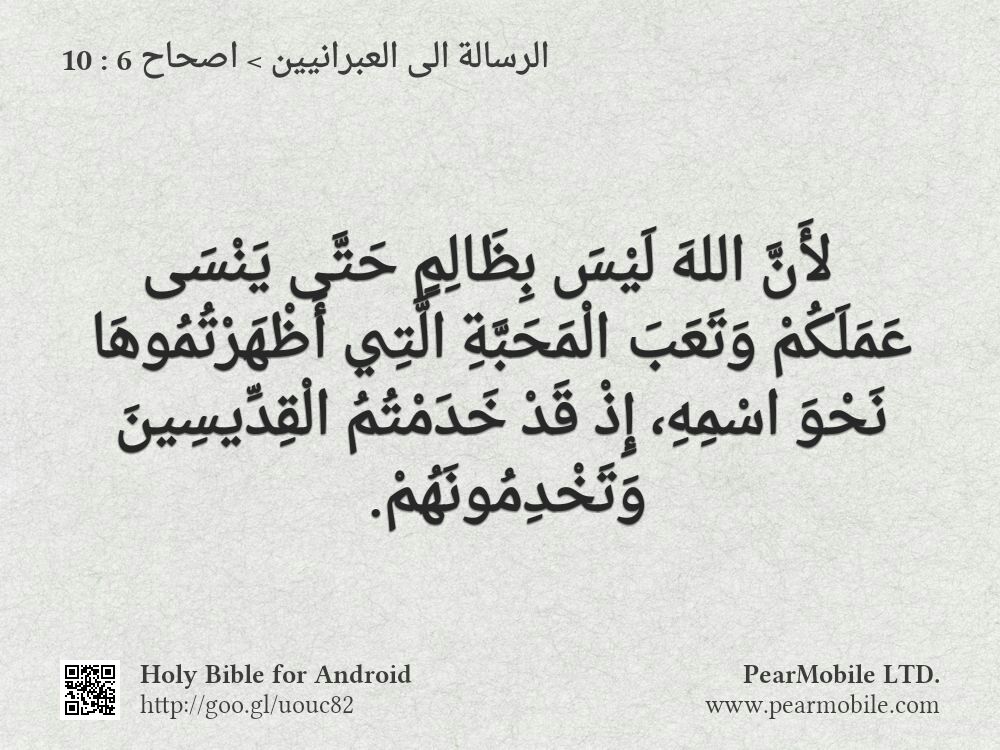 الرسالة الى العبرانيين > اصحاح 6 : 10
لأَنَّ اللهَ لَيْسَ بِظَالِمٍ حَتَّى يَنْسَى
عَمَلَكُمْ وَتَعَبَ الْمَحَبَّةِ الَّتِي أَظْهَرْتُمُوهَا
نَحْوَ اسْمِهِ، إِذْ قَدْ خَدَمْتُمُ الْقِدِّيسِينَ
وَتَخْدِمُونَهُمْ.
Holy Bible for Android
http://goo.gl/uouc82
PearMobile LTD.
www.pearmobile.com